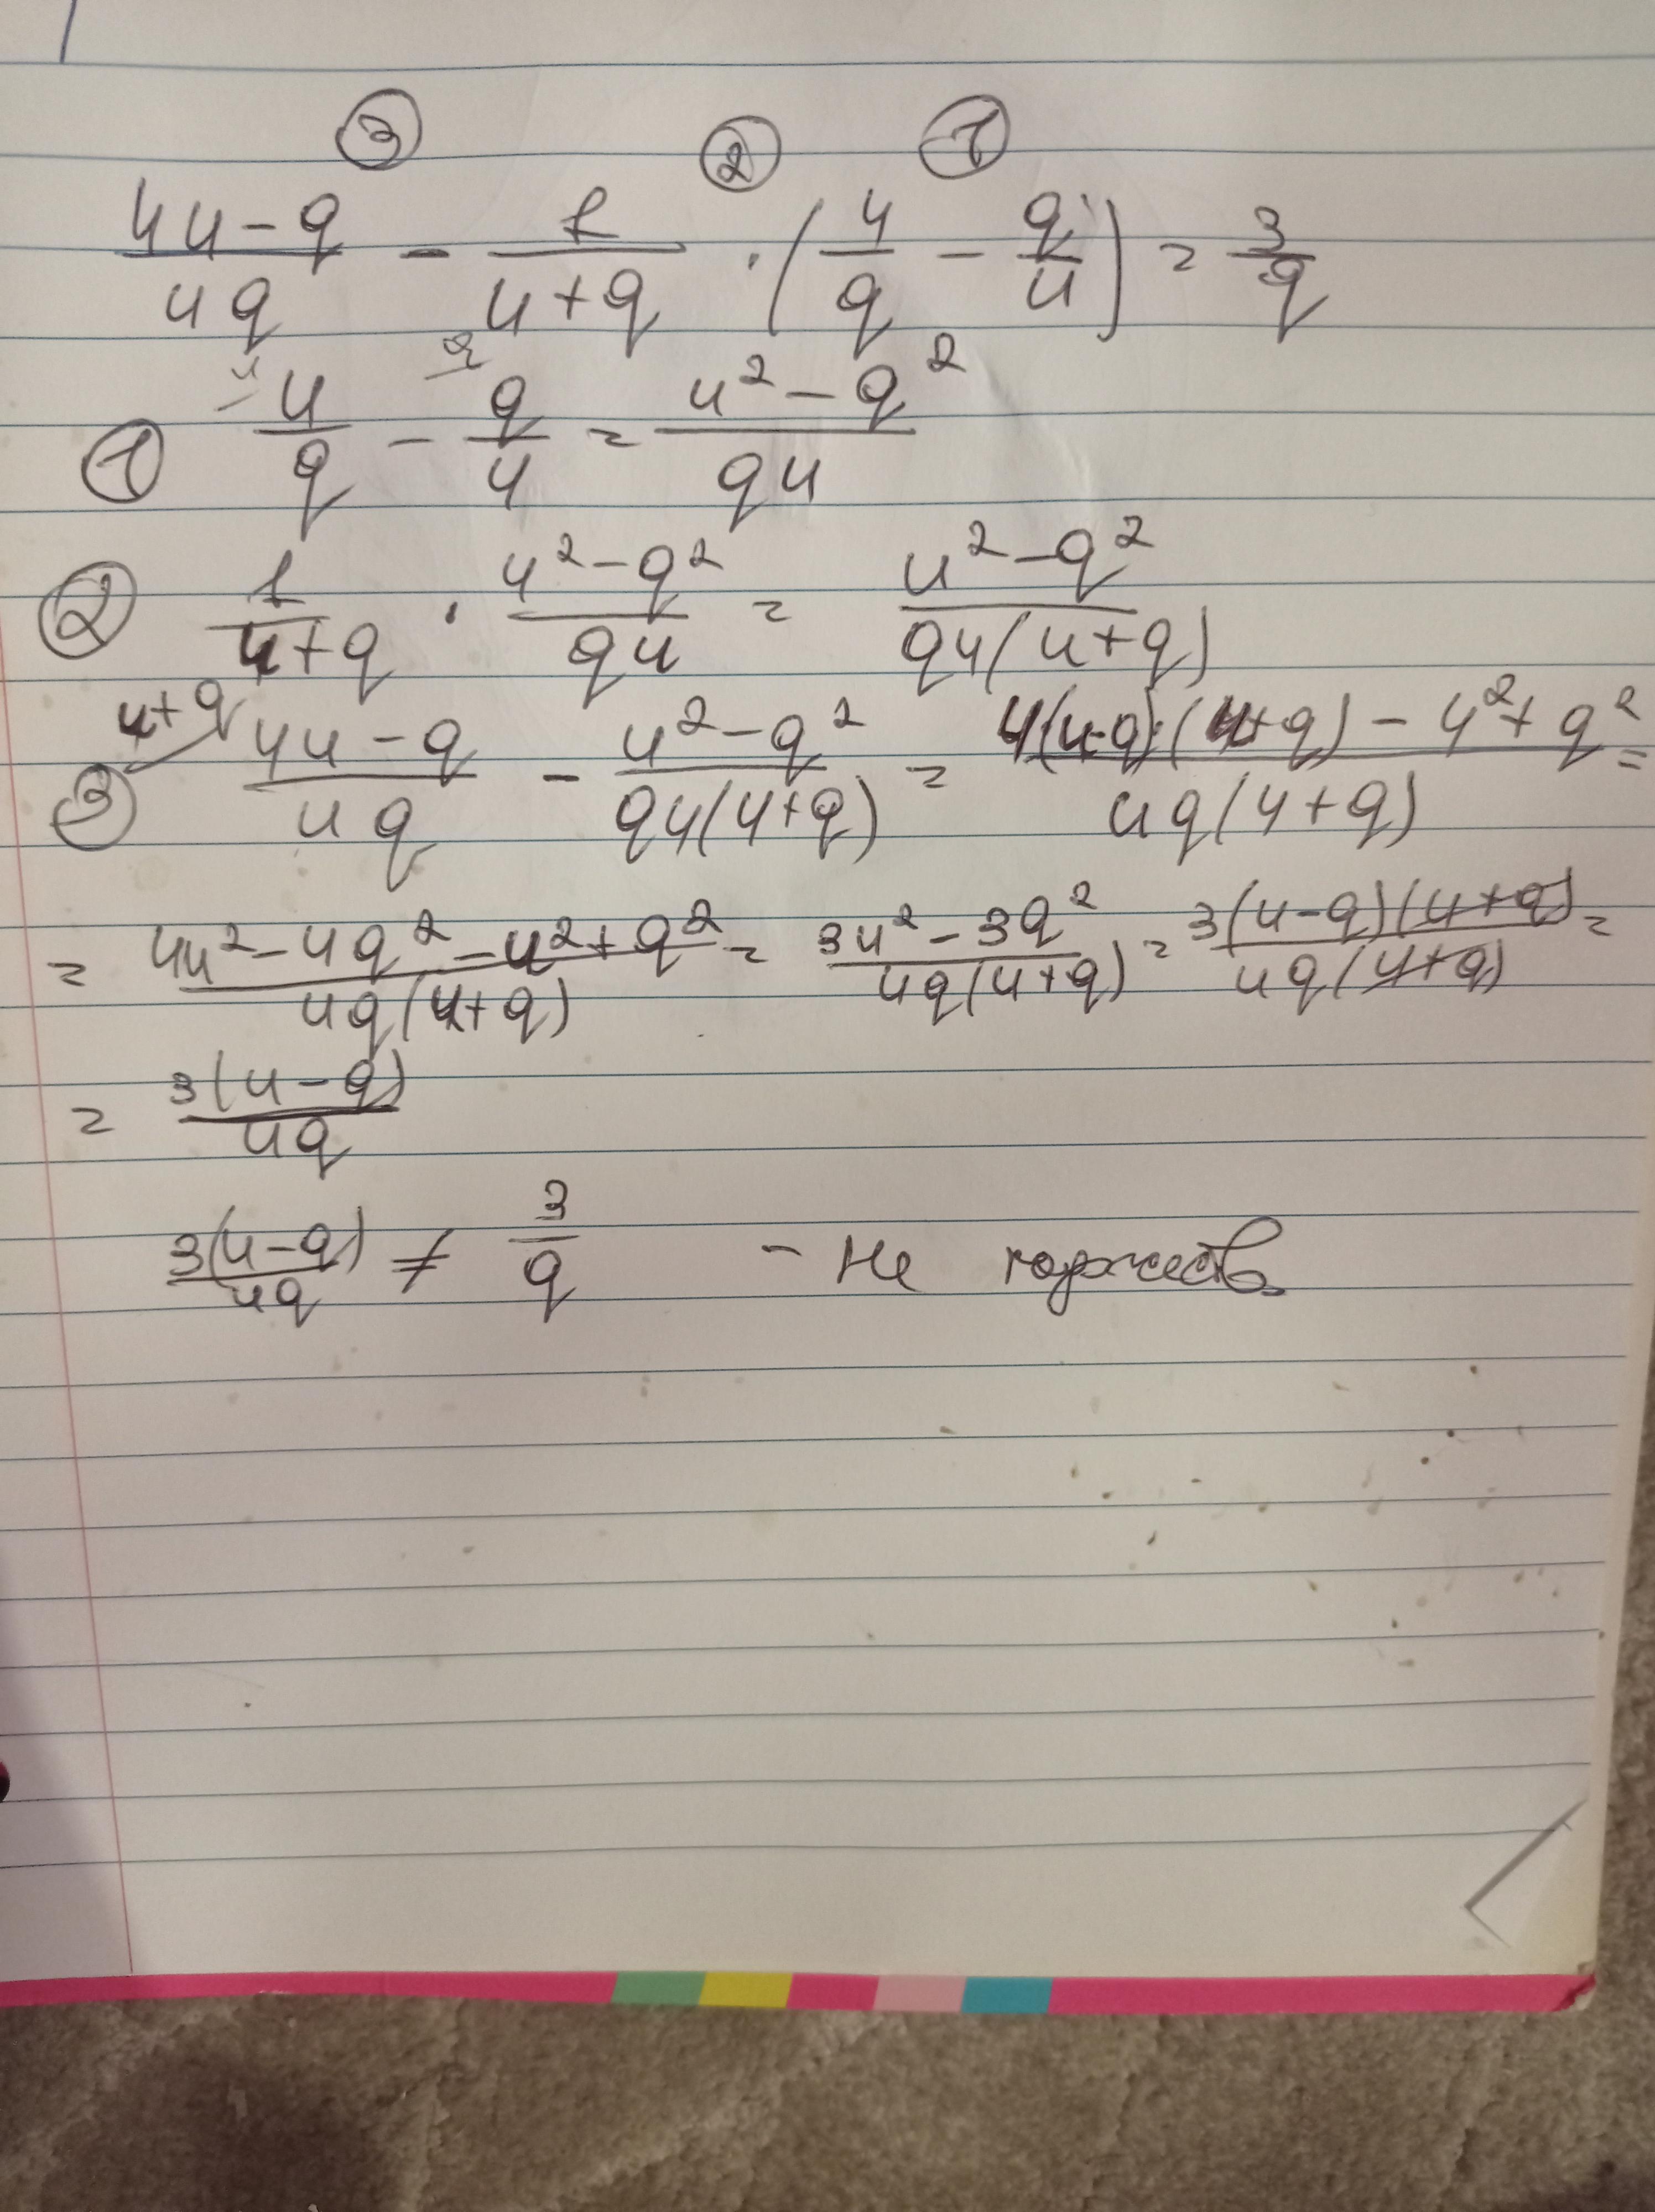 ③ ② ①
4u-q/uq - 1/u+q · (u/q - q/u) = 3/q
① u/q - q/u = u²-q²/qu
② 1/u+q · u²-q²/qu = u²-q²/qu(u+q)
u+q
③ 4u-q/uq - u²-q²/qu(u+q) = 4(u-q)·(u+q) - u²+q²/uq(u+q) =
= 4u²-4q²-u²+q²/uq(u+q) = 3u²-3q²/uq(u+q) = 3(u-q)(u+q)/uq(u+q) =
= 3(u-q)/uq
3(u-q)/uq ≠ 3/q - не тождеств.